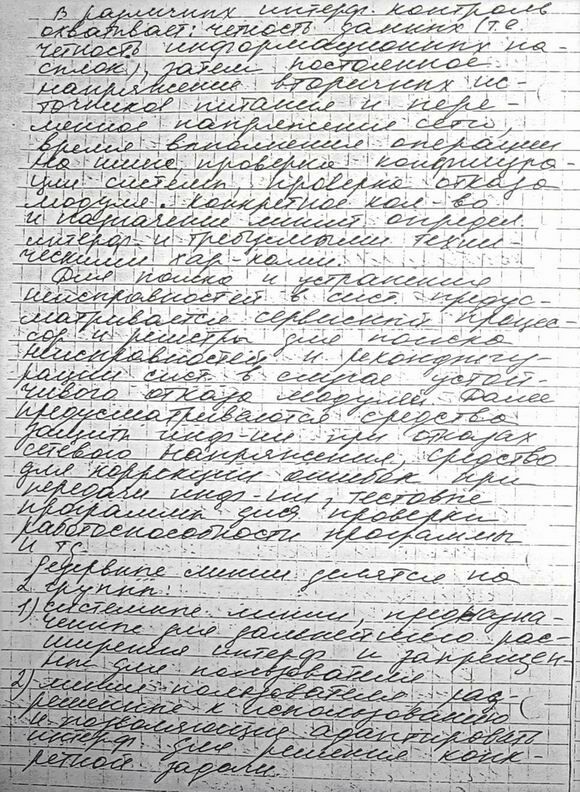 В различных интерф. контроль
охватывает: четность данных (т.е.
четность информационных по-
сылок), затем постоянное
напряжение вторичных ис-
точников питания и пере-
менное напряжение сети,
время выполнения операции
на шине, проверка конфигура-
ции системы, проверка отказа
модуля. Конкретное кол-во
и назначение линий определ.
интерф. и требуемыми техни-
ческими хар-ками.
Для поиска и устранения
неисправностей в сист. предус-
матривается сервисный процес-
сор и регистры для поиска
неисправностей и реконфигу-
рации сист. в случае устой-
чивого отказа модулей. Далее
предусматриваются средства
защиты инф-ии при отказах
сетевого напряжения, средства
для коррекции ошибок при
передачи инф-ии, тестовые
программы для проверки
работоспособности программы
и тд.
Резервные линии делятся на
2 группы:
1) системные линии, предназна-
ченные для дальнейшего рас-
ширения интерф. и запрещен-
ны для пользователя
2) линии пользователя, раз-
решенные к использованию
и позволяющие адаптировать
интерф. для решения конк-
ретной задачи.